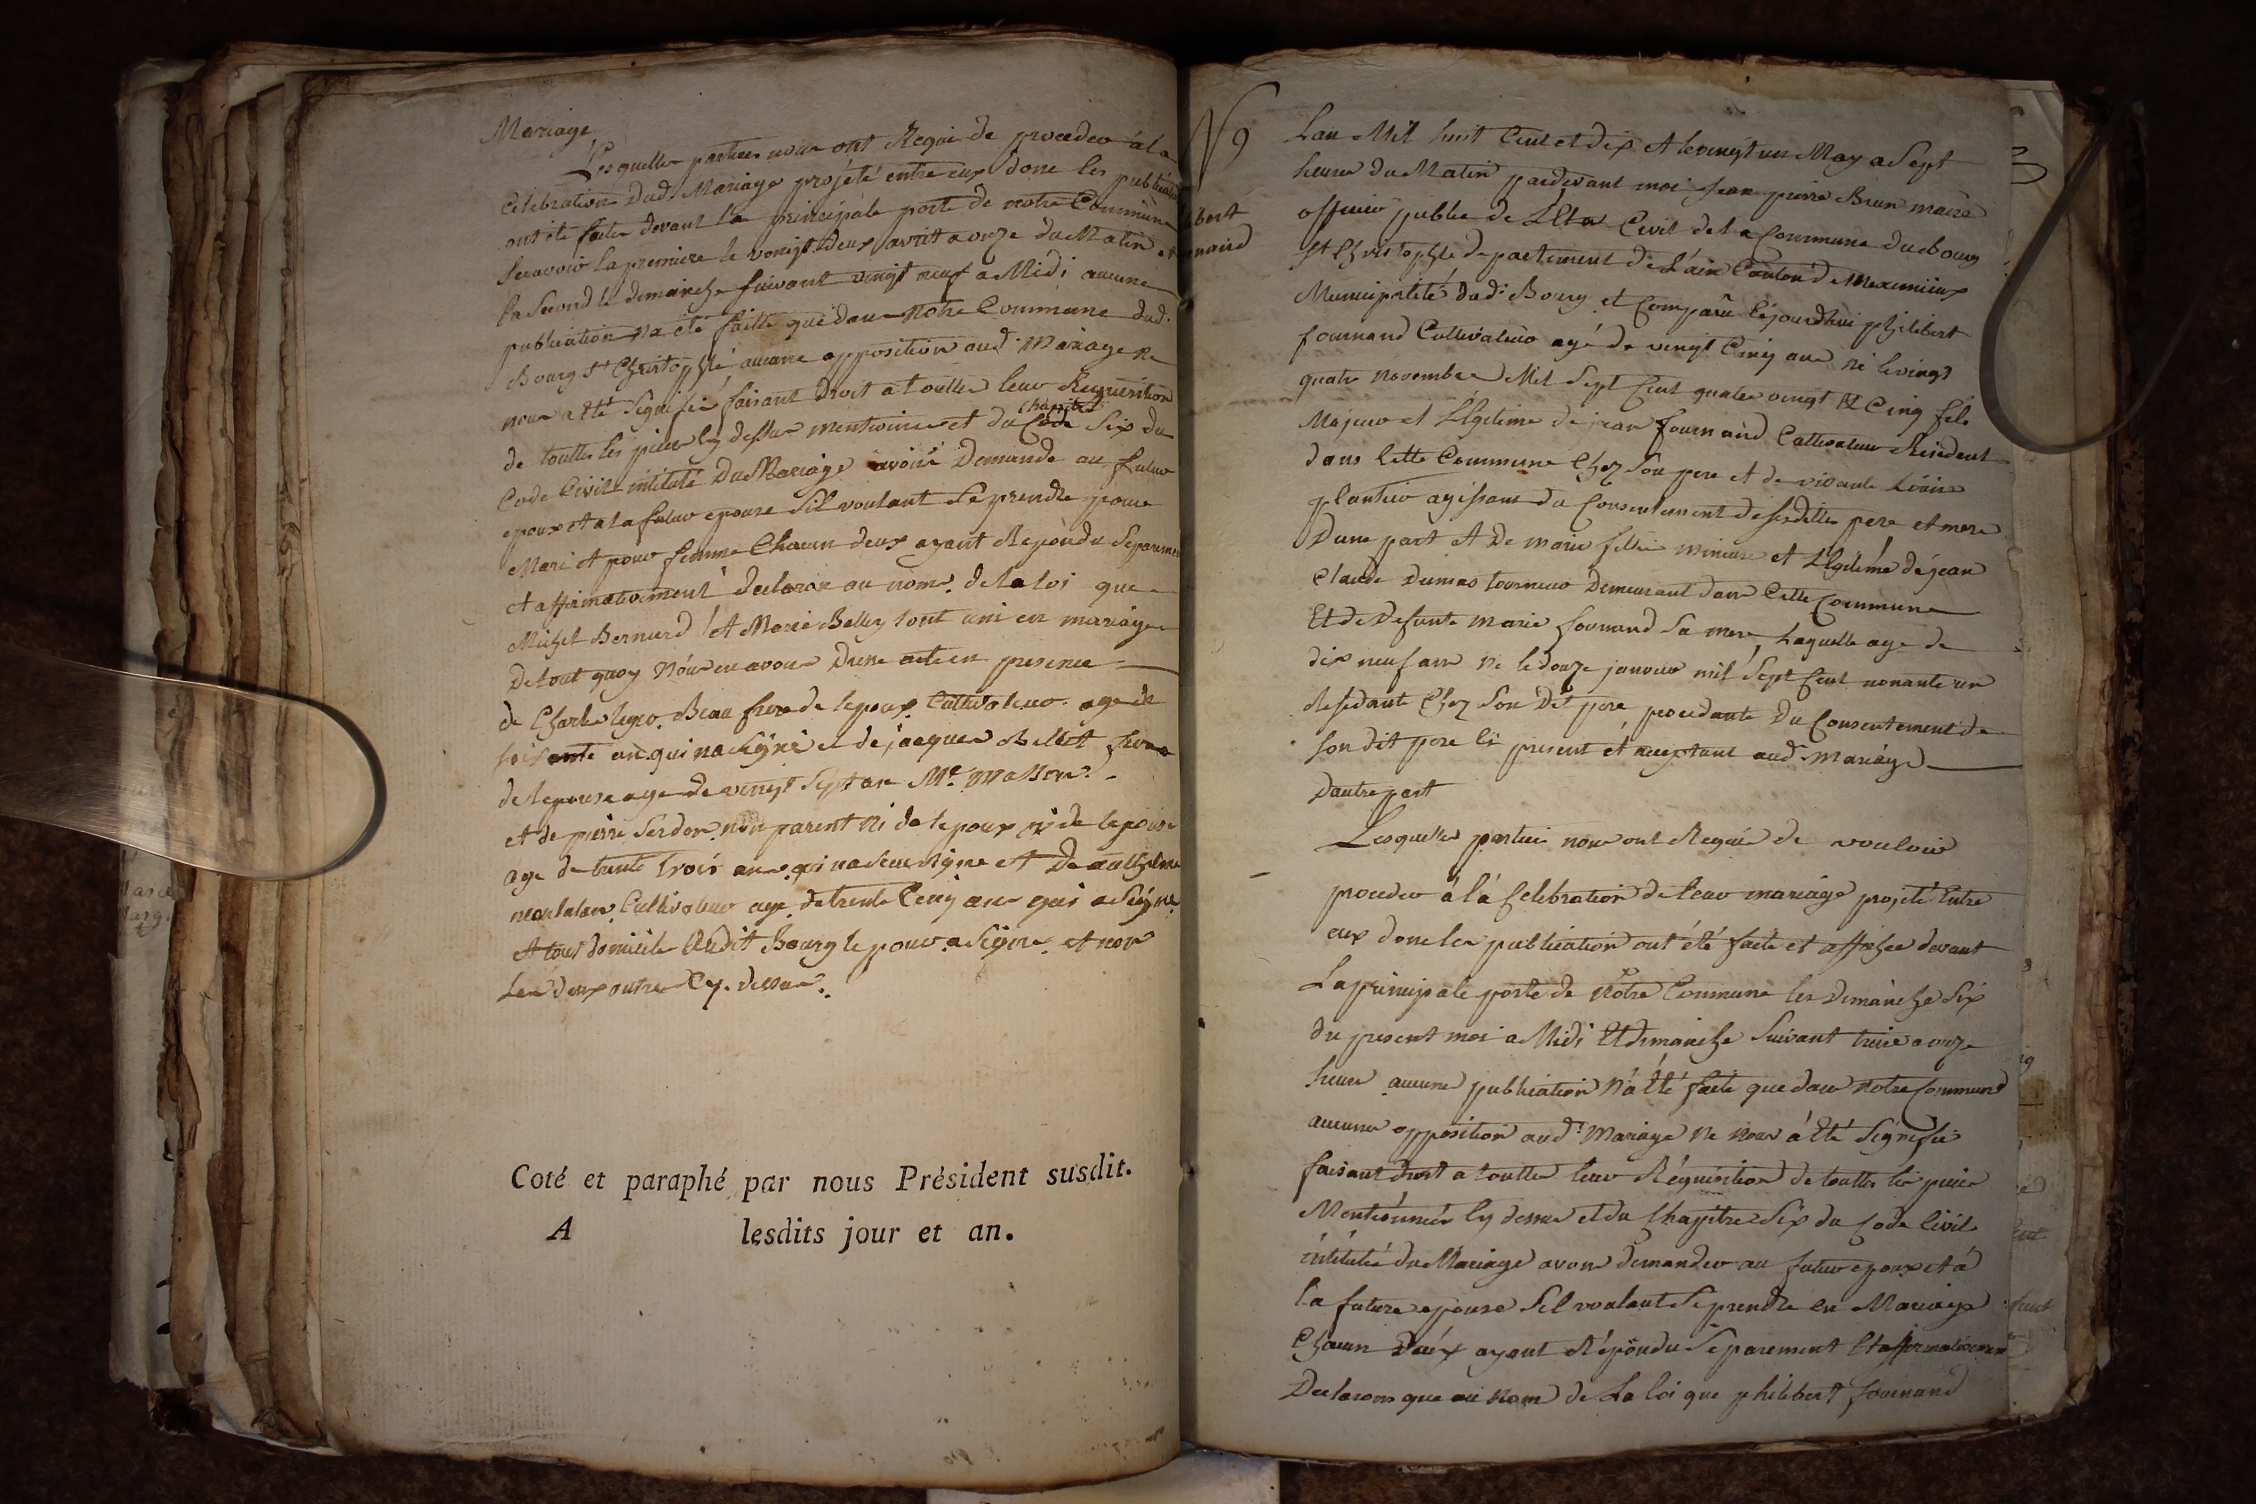 Mariage
Lesquelles parties nous ont Requi de proceder à la
Célébration Dud. Mariage projété entre eux Donc les publication
ont été faite devant la principale porte de notre Commune
Sçeavoir la premiere le vengt deux avrit a onze du Matin et
la Second le dimanche suivant vingt neuf a Midi aucune
publication na été faitte que dans Notre Commune dud.
Bourg St Christophle aucune opposition aud. Mariage ne
nous a été Signifié faisant Droit a toutte leur Requisition
de toutte les piece Cy dessus mentionnee et du Chapitre Six du
Code Civil intitulé Du Mariage avons Demande au futur
epoux et a la futur epouse Sil voulant Se prendre pour
Mari et pour femme Chacun deux ayant Repondu Separement
et affirmativement Declaron au nome de la loi que
Michel Bernard et Marie Belley sont uni en mariage
De tout quoy Nous en avons Dresse acte en presence
de Charle legro Beau frere de lepoux Cultivateur age de
soisente an qui na Signé et de jacque Bellet frere
de lepouse age de vengt Sept an Me. Masson
et de pierre Serdon non parent ni de lepoux ni de lepouse
age de trente trois ans qui na seu signe et De anthelme
montalan Cultivateur age de trente Cenq ans qui a Signe
et tous domicile Audit Bourg lepoux a Signe et non
les deux outres Cy. dessus.
Coté et paraphé par nous Président susdit.
A lesdits jour et an.
N 9
ibert
rnand
Lan Mil huit Cent et dix et le vingt un May a Sept
heure du Matin pardevant moi jean pierre Brun maire
officier public de LEta Civil de la Commune du bourg
St Christophle departement de l'ain Canton de Meximiux
Municipalité dud. Bourg et Comparu cejourdhui philibert
fournand Cultivateur agé de vingt Cinq ans né le vingt
quatre novembre Mil Sept Cent quatre vingt Cinq fils
Majeur et Légitime de jean fournand Cultivateur Résident
dans Cette Commune Chez Son pere et de vivante
plantier agissant du Consentement de sesdittes pere et mere
Dune part et De marie fille mineure et Légitime de jean
Claude Dumas tourneur Demeurant dans Cette Commune
Et de Defunte Marie fournand Sa mere, Laquelle age de
dix neuf ans né le douze janvier mil Sept Cent nonante un
Residante Chez Son Dit pere procedante Du Consentement de
Son dit pere Ci present et acceptant aud. Mariage
Dautre part
Lesquelles partie nous ont Requi de vouloir
proceder à la Celebration de leur mariage projeté Entre
eux donc les publication ont été faite et affichee devant
La principale porte de Notre Commune les Dimanche Six
du present moi a Midi Et dimanche Suivant treize a onze
heure aucune publication N'a été faite que dans Notre Commune
aucune opposition aud. Mariage ne nous a été Signifié
faisant Droit a toutte leur Réquisition de touttes les piece
Mentionnées Cy dessus et du Chapitre Six du Code Civil
intitulée du Mariage avons demander au futur epoux et à
la future epouse Sil voulant Se prendre en Mariage
Chacun Deux ayant Répondu Séparement Et affirmativement
Declarons que au Nom de La loi que philibert fournand